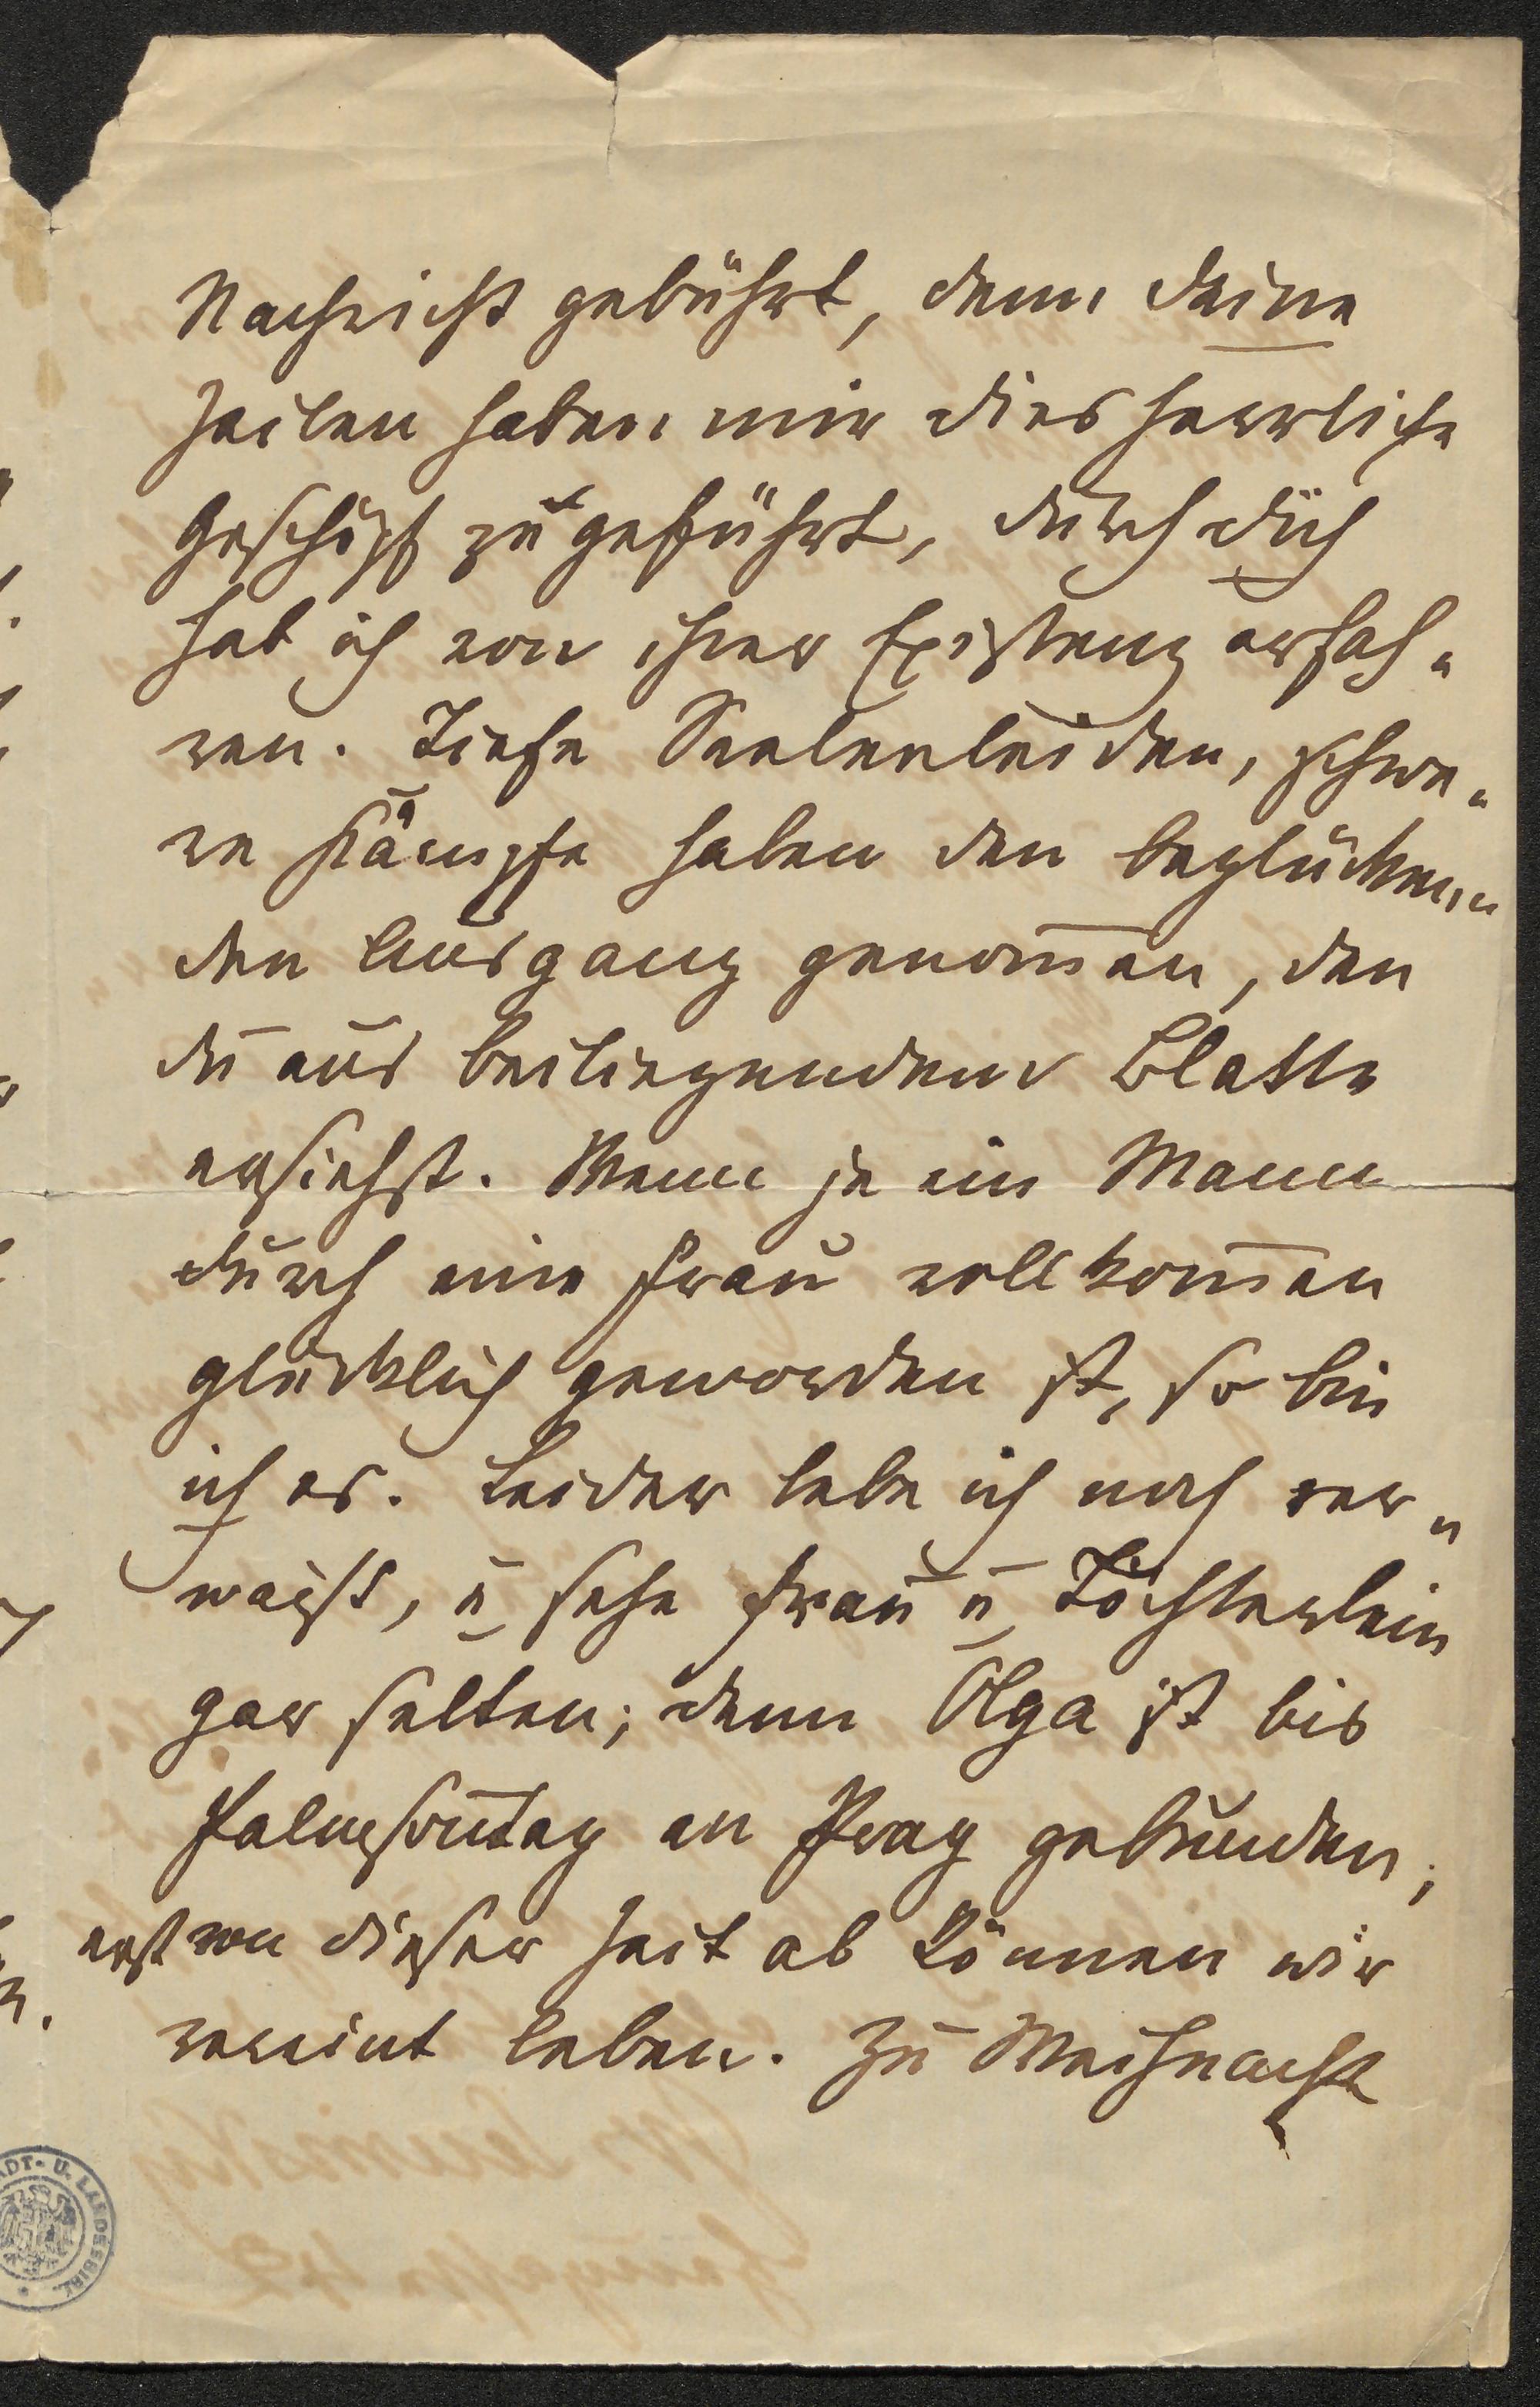 Nachricht gebührt, denn deine
Zeilen haben mir dies herrliche
Geschöpf zugeführt, durch dich
hab ich von ihrer Existenz erfah-
ren. Tiefe Seelenleiden, schwe-
re Kämpfe haben den beglücken-
den Ausgang genom̅en, den
du aus beiliegendem Blatte
ersiehst. Wenn je ein Mann
durch eine Frau vollkom̅en
glücklich geworden ist, so bin
ich es. Leider lebe ich noch ver-
waist, u. sehe Frau u. Töchterlein
gar selten; denn Olga ist bis
Palmson̅tag an Prag gebunden;
erst von dieser Zeit ab können wir
vereint leben. Zu Weihnacht
ADT- U. LANDESBIBL